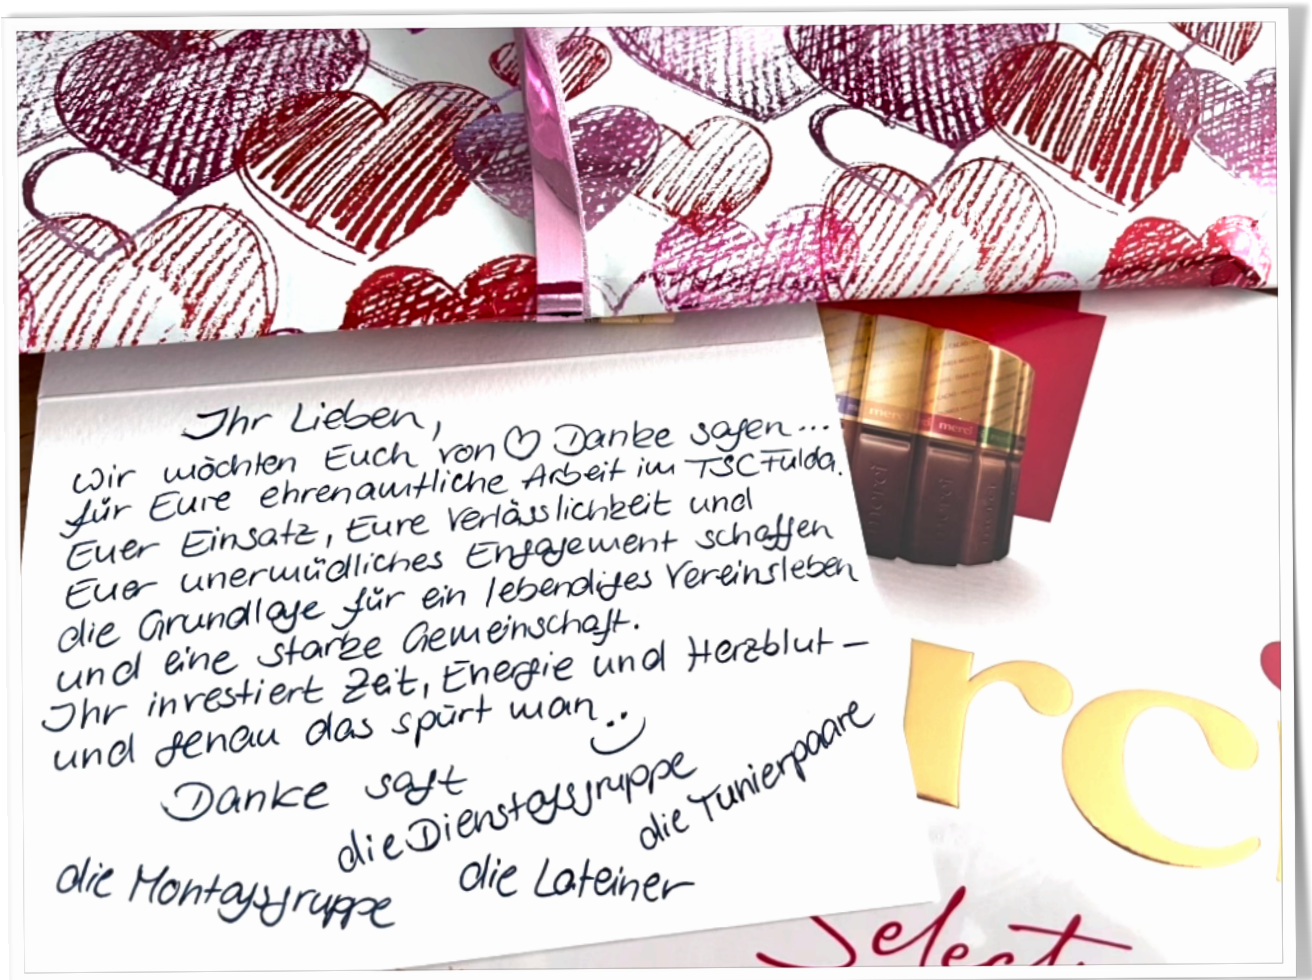 Ihr Lieben,
wir möchten Euch von ♡ Danke sagen...
für Eure ehrenamtliche Arbeit im TSC Fulda.
Euer Einsatz, Eure Verlässlichkeit und
Euer unermüdliches Engagement schaffen
die Grundlage für ein lebendiges Vereinsleben
und eine starke Gemeinschaft.
Ihr investiert Zeit, Energie und Herzblut –
und genau das spürt man.
Danke sagt
die Dienstagsgruppe
die Tunierpaare
die Montagsgruppe
die Lateiner
merci
merci
merci
merci
rci
Select